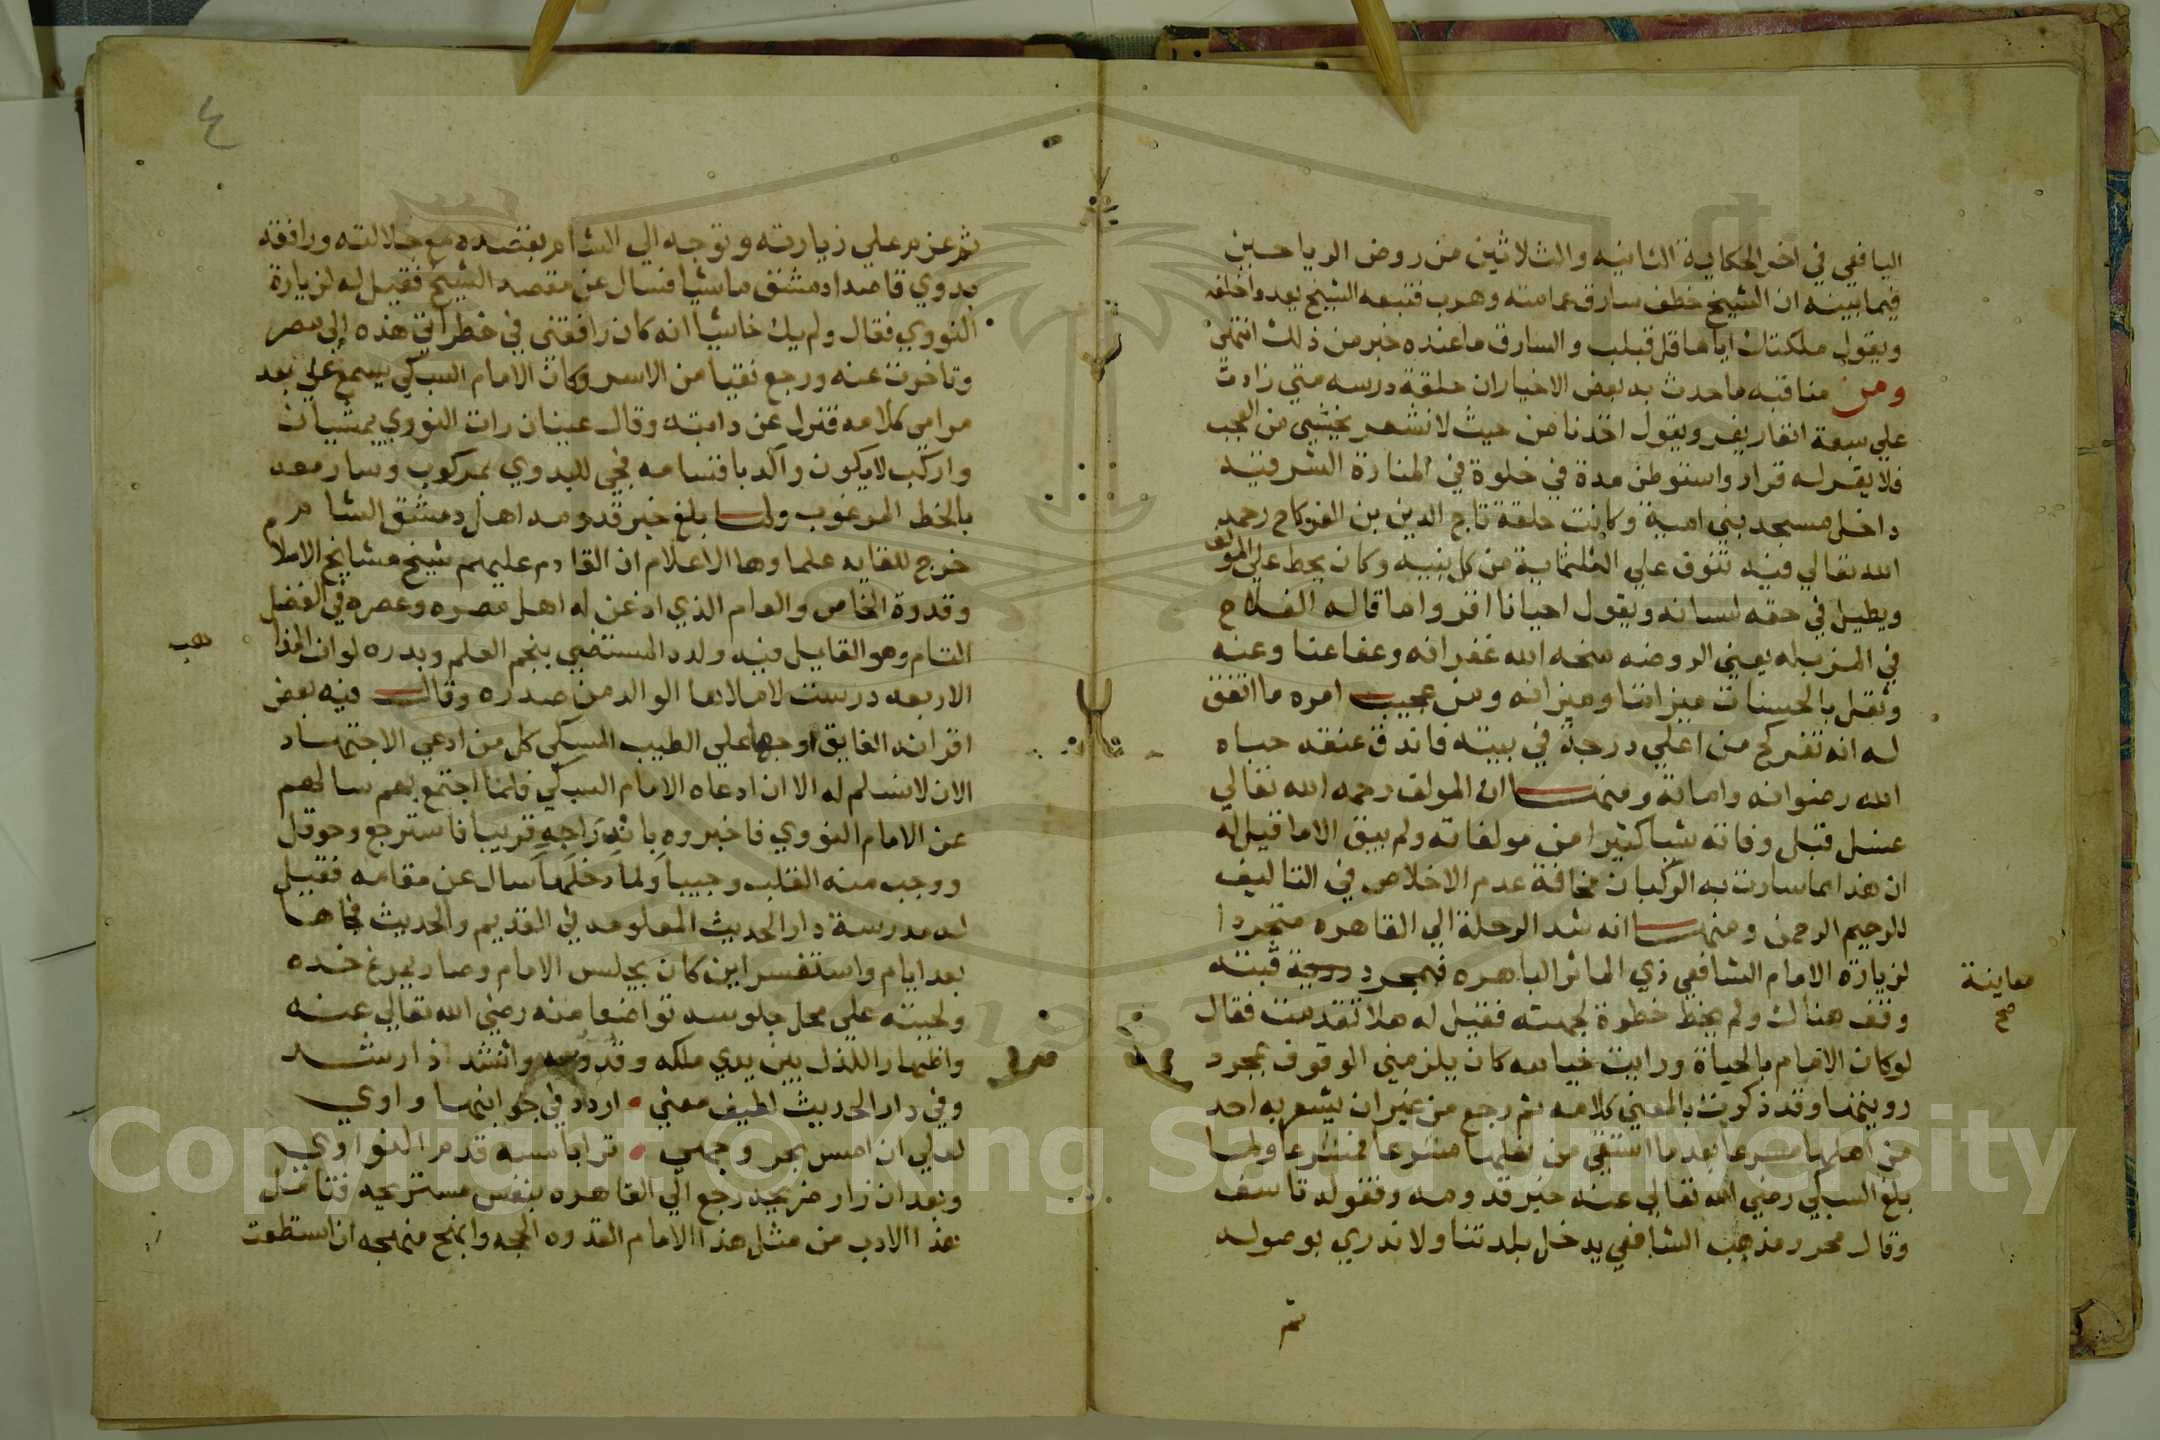 اليافعي في اخر الحكاية الثانيه والثلاثين من روض الرياحين
فيما بينه ان الشيخ خطف سارق عمامته وهرب فتبعه الشيخ يعدو اخلفه
ويقول ملكتك اياها قل قبلت والسارق ما عنده خبر من ذلك انتهى
ومن مناقبه ما حدث به بعض الاخيار ان حلقة درسه متي زادت
علي سبعة انفار يفر ويقول اخذنا من حيث لا نشعر يختشي من العجب
فلا يقر له قرار واستوطن مدة في خلوة في المنارة الشرقيه
داخل مسجد بني امية وكانت حلقة تاج الدين بن الفركاح رحمه
الله تعالي فيه تنوف علي الثلثماية من كل نبيه وكان يحط علي المولف
ويطيل في حقه لسانه ويقول احيانا اقروا ما قاله الفلاح
في المزبله يعني الروضه منحه الله غفرانه وعفا عنا وعنه
وثقل بالحسنات ميزاننا وميزانه ومن عجيب امره ما اتفق
له انه تفركح من اعلي درجة في بيته فاندق عنقه حباه
الله رضوانه وامانه ومنها ان المولف رحمه الله تعالي
غسل قبل وفاته شيا كثيرا من مولفاته ولم يبق الا ما قيل له
ان هذا مما سارت به الركبان مخافة عدم الاخلاص في التاليف
للرحيم الرحمن ومنها انه شد الرحلة الي القاهره متجردا
لزيارة الامام الشافعي ذي الماثر الباهره فبمجرد قبته
معاينة
صح
وقف هنالك ولم يخط خطوة لجهته فقيل له هلا تقدمت فقال
لو كان الامام بالحياة ورايت خيامه كان يلزمني الوقوف بمجرد
رويتها وقد ذكرت بالمعني كلامه ثم رجع من غير ان يشعر به احد
من اهلها مسرعا بعد ما استقي من نعلها مشرعا فمشرعا ولما
بلغ السبكي رضي الله تعالي عنه خبر قدومه وقفوله تاسف
وقال محرر مذهب الشافعي يدخل بلدتنا ولا ندري بوصوله
ثم
٤
ثم عزم علي زيارته وتوجه الي الشام بقصده مع جلالته ورافقه
بدوي قاصدا دمشق ماشيا فسال عن مقصد الشيخ فقيل له لزيارة
النووي فقال ولم يك خاشيا انه كان رافقني في خطراتي هذه الي مصر
وتاخرت عنه ورجع نقيا من الاسر وكان الامام السبكي يسمع علي بعد
مرامي كلامه فنزل عن دابته وقال عينان رات النووي يمشيان
واركب لا يكون واكد باقسامه فجي للبدوي بمركوب وسار معه
بالخط المرغوب ولما بلغ خبر قدومه اهل دمشق الشام
خرج للقايه علماوها الاعلام ان القادم عليهم شيخ مشايخ الاسلام
وقدوة الخاص والعام الذي اذعن له اهل مصره وعصره في الفضل
التام وهو القايل فيه ولده المستضي بنجم العلم وبدره لو ان المذا
هب
الاربعه درست لاملاها الوالد من صدره وقال فيه بعض
اقرانه الفايق اوجها علي الطيب المسكي كل من ادعي الاجتهاد
الان لا نسلم له الا ان ادعاه الامام السبكي فلما اجتمع بهم سالهم
عن الامام النووي فاخبروه باندراجه قريبا فاسترجع وحوقل
ووجب منه القلب وجيبا ولما دخلها سال عن مقامه فقيل
له مدرسة دار الحديث المعلومه في القديم والحديث فجاها
بعد ايام واستفسر اين كان يجلس الامام وصار يمرغ خده
ولحيته علي محل جلوسه تواضعا منه رضي الله تعالي عنه
واظهارا للذل بين يدي ملكه وقدوسه وانشد اذ ارشد
وفي دار الحديث لطيف معني • اردد في جوانبها واوي
لعلي ان امس بحر وجهي • ترابا مسه قدم النواوي
وبعد ان زار ضريحه رجع الي القاهره بنفس مستريحه فتامل
هذا الادب من مثل هذا الامام القدوه الجمه وانهج منهجه ان استطعت